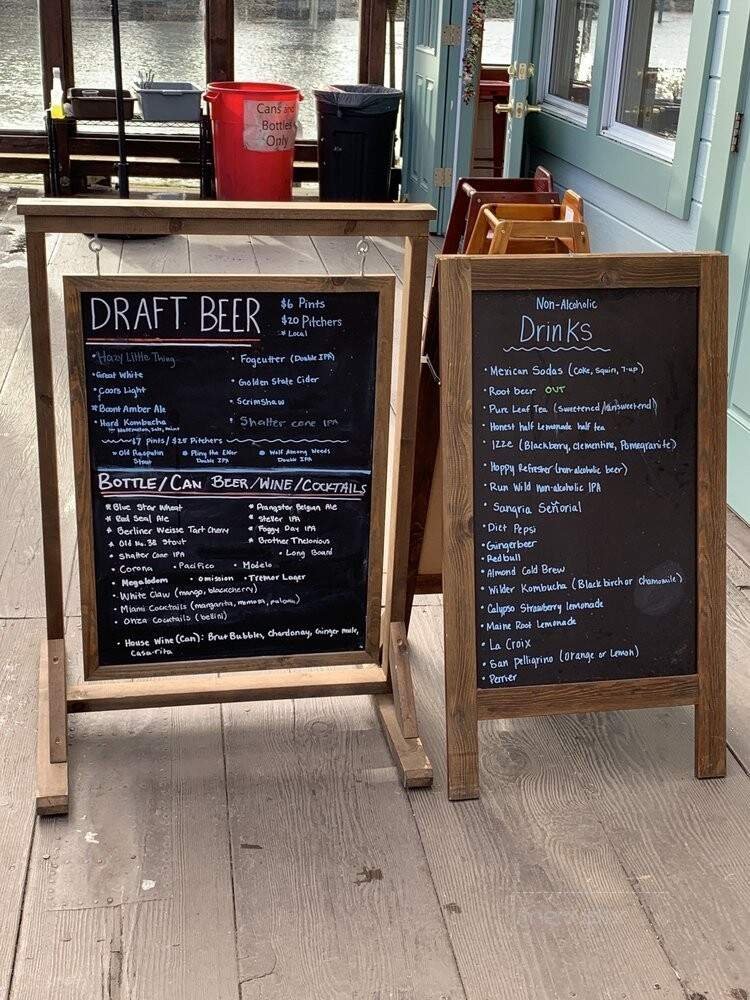 Cans and
Bottles
Only
DRAFT BEER
$6 Pints
$20 Pitchers
* Local
• Hazy Little Thing
• Great White
• Coors Light
* Boont Amber Ale
• Hard Kombucha
• Fogcutter (Double IPA)
• Golden State Cider
• Scrimshaw
• Shatter cone IPA
$7 pints / $25 Pitchers
* Old Rasputin
Stout
• Pliny the Elder
Double IPA
• Wolf Among Weeds
Double IPA
BOTTLE/CAN BEER/WINE/COCKTAILS
* Blue Star Wheat
* Red Seal Ale
* Berliner Weisse Tart Cherry
* Old No. 38 Stout
• Shatter Cone IPA
* Prangster Belgian Ale
* Steller IPA
* Foggy Day IPA
* Brother Thelonious
• Long Board
• Corona • Pacifico • Modelo
• Megalodom • omission • Tremor Lager
• White Claw (mango, blackcherry)
• Miami Cocktails (margarita, mimosa, paloma)
• Onza Cocktails (bellini)
• House Wine (Can): Brut Bubbles, chardonay, Ginger mule,
Casa-rita
Non-Alcoholic
Drinks
• Mexican Sodas (Coke, Squirt, 7-up)
• Root beer OUT
• Pure Leaf Tea (sweetened/unsweetened)
• Honest half Lemonade half tea
• Izze (Blackberry, clementine, Pomegranite)
• Hoppy Refresher (non-alcoholic beer)
• Run Wild non-alcoholic IPA
• Sangria Señorial
• Diet Pepsi
• Gingerbeer
• Redbull
• Almond Cold Brew
• Wilder Kombucha (Black birch or chamomile)
• Calypso Strawberry lemonade
• Maine Root Lemonade
• La Croix
• San pelligrino (orange or Lemon)
• Perrier